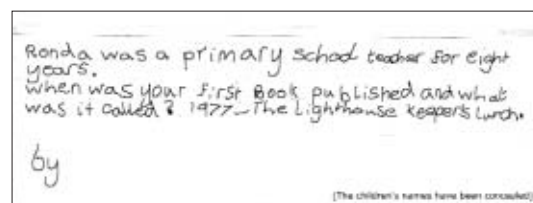 Ronda was a primary school teacher for eight
years.
when was your first Book published and what
was it called? 1977-The Lighthouse keeper's Lunch.
by
(The children's names have been concealed)